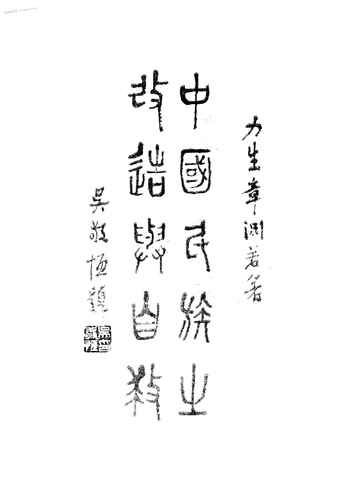 力生章渊若著
中國民族之
改造與自救
吳敬恆題